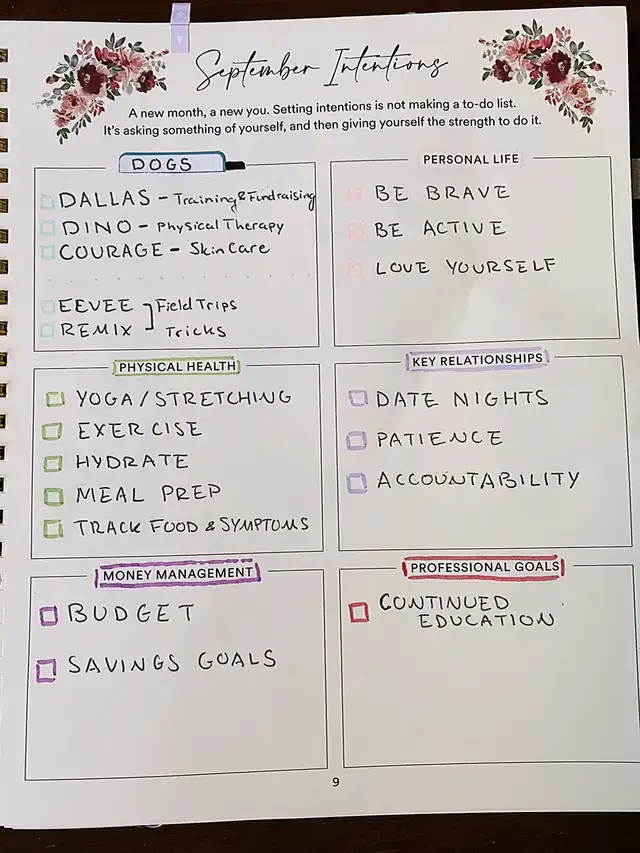 September Intentions
A new month, a new you. Setting intentions is not making a to-do list.
It's asking something of yourself, and then giving yourself the strength to do it.
DOGS
DALLAS - Training & Fundraising
DINO - Physical Therapy
COURAGE - Skin Care
EEVEE Field Trips
REMIX Tricks
PERSONAL LIFE
BE BRAVE
BE ACTIVE
LOVE YOURSELF
PHYSICAL HEALTH
YOGA/STRETCHING
EXERCISE
HYDRATE
MEAL PREP
TRACK FOOD & SYMPTOMS
KEY RELATIONSHIPS
DATE NIGHTS
PATIENCE
ACCOUNTABILITY
MONEY MANAGEMENT
BUDGET
SAVINGS GOALS
PROFESSIONAL GOALS
CONTINUED
EDUCATION
9